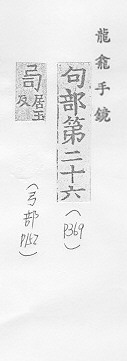 龍龕手鏡
句部第二十六
(P369)
居玉
反
(弓部 P152)